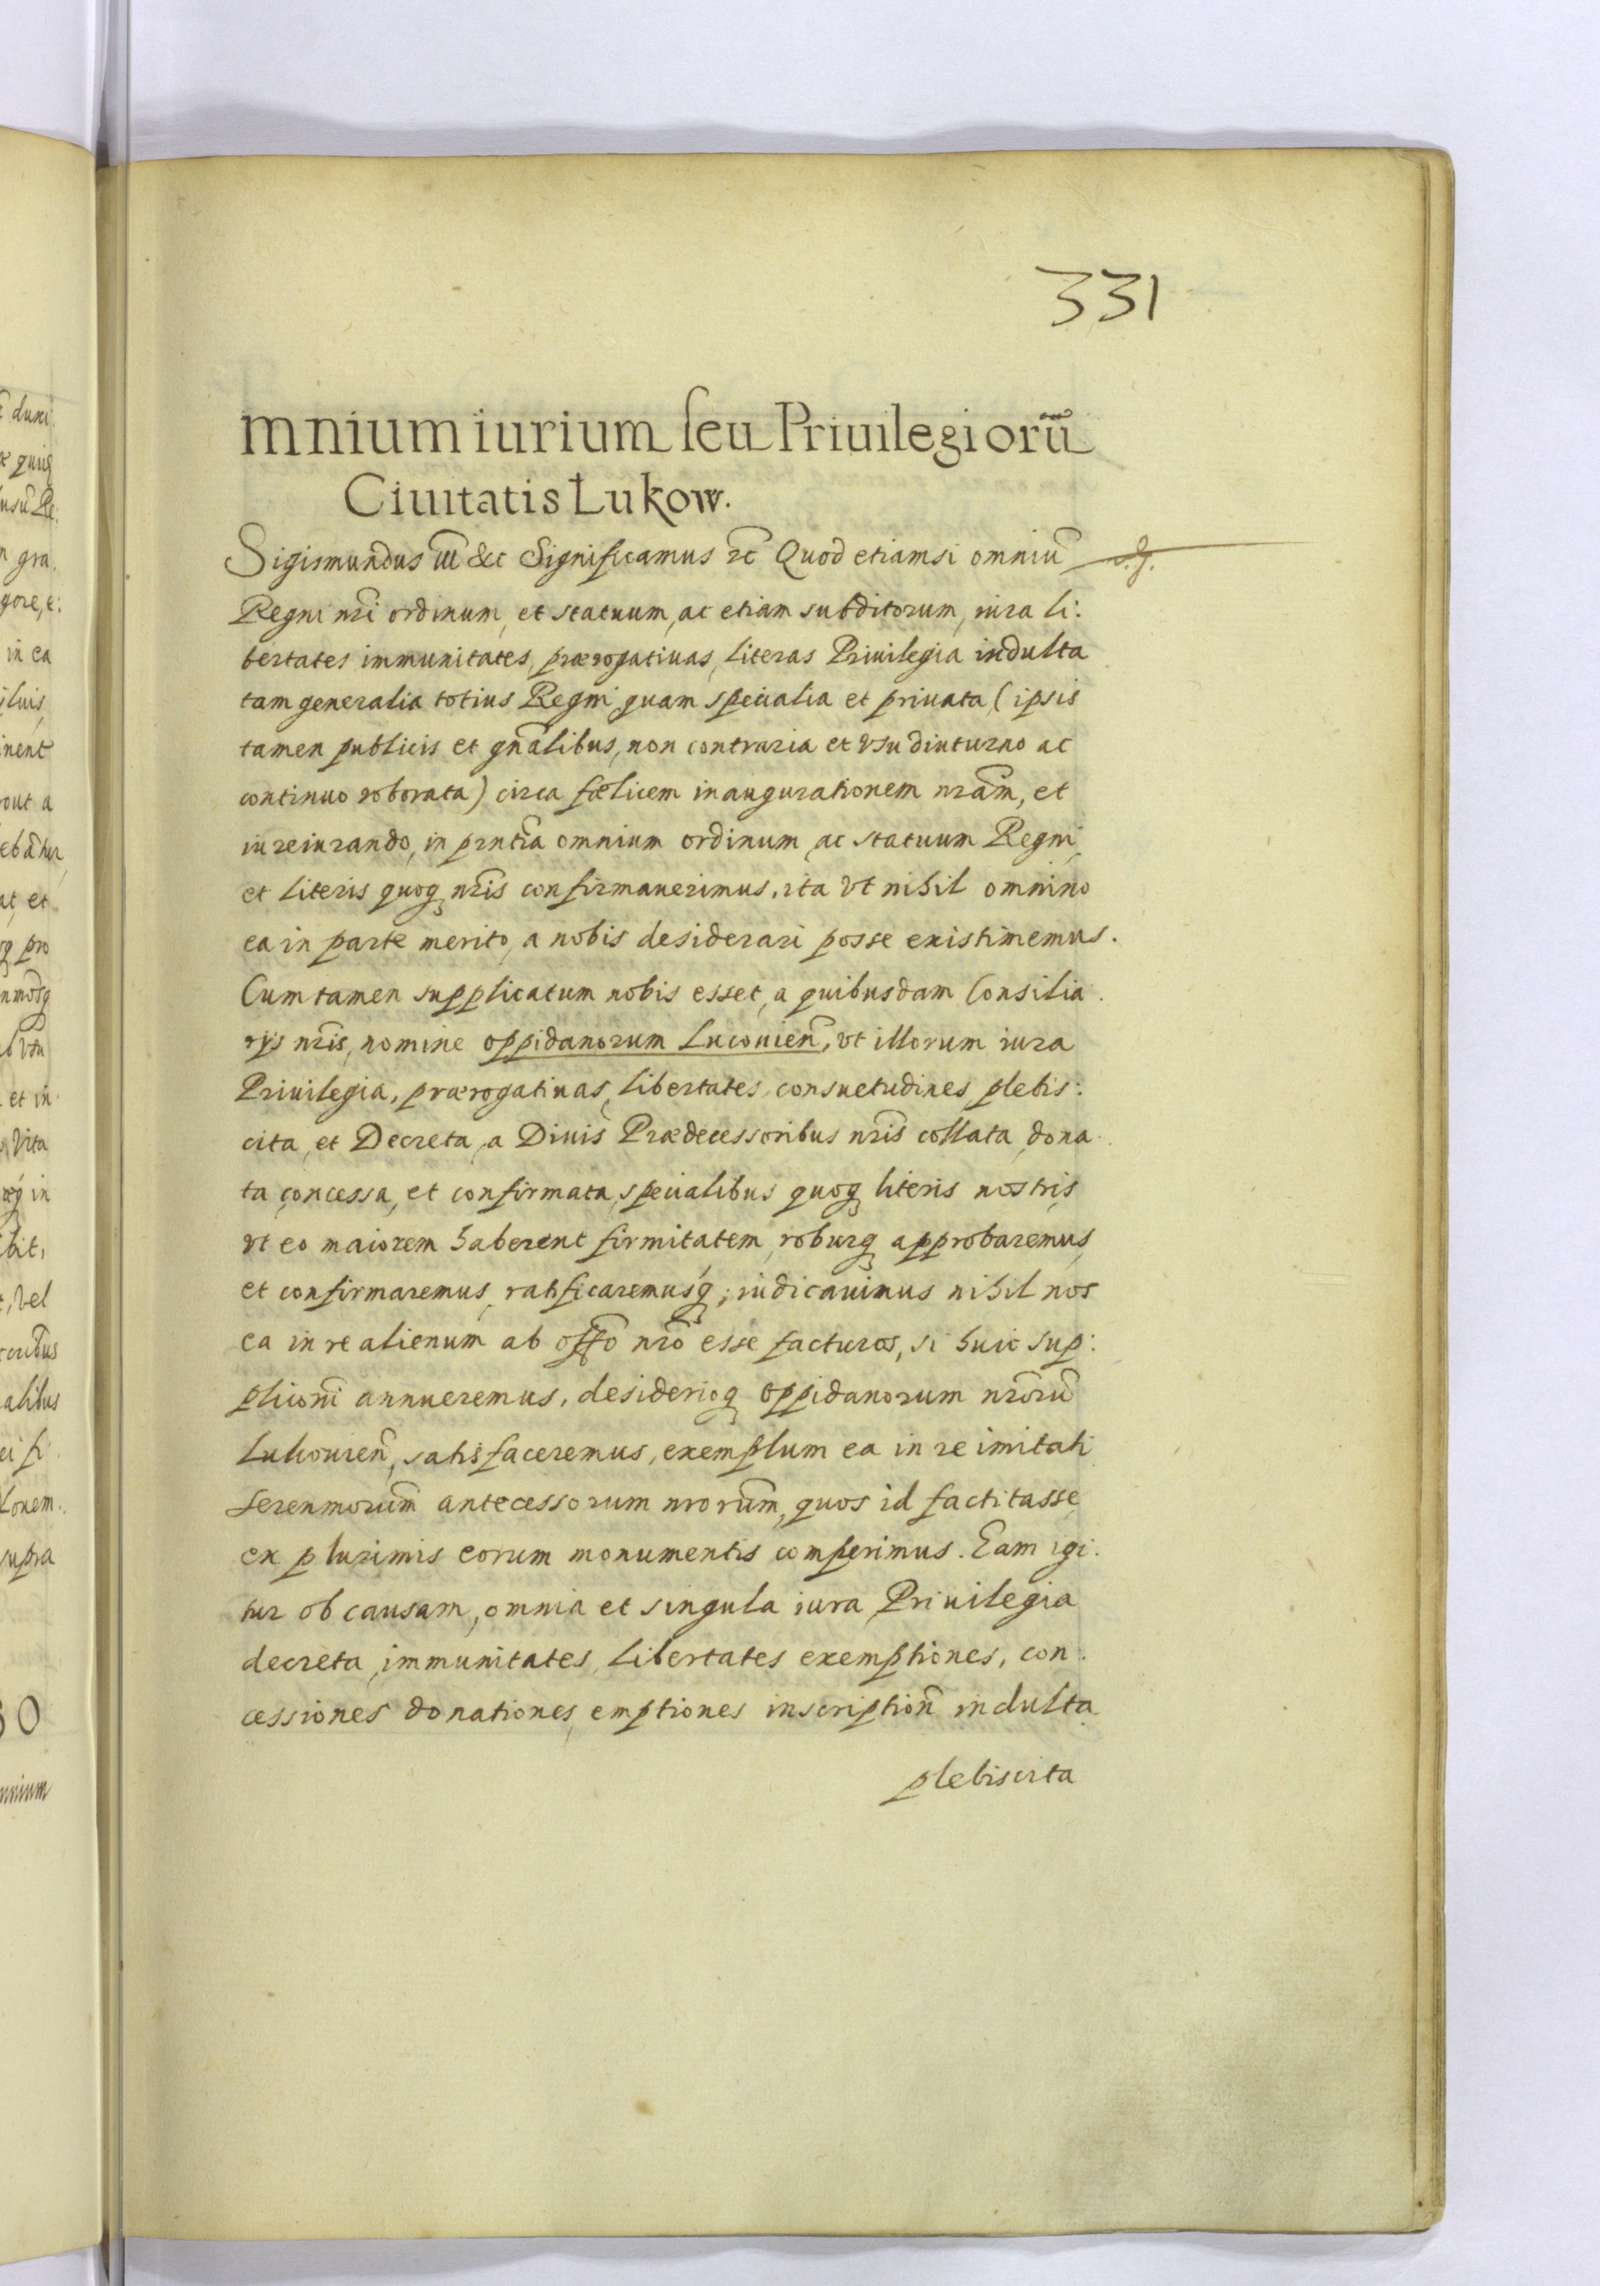 331
mnium iurium seu Priuilegiorũ
Ciuitatis Lukow.
Sigismundus III &c Significamus &c Quod etiamsi omniũ
Regni nr̃i ordinum, et statuum, ac etiam subditorum, iura li:
bertates immunitates, prærogatiuas, literas Priuilegia indulta
tam generalia totius Regni, quam specialia et priuata, (ipsis
tamen publicis et gñalibus, non contraria et vsu diuturno ac
continuo roborata) circa fœlicem inaugurationem nr̃am, et
iureiurando, in prñtia omnium ordinum, ac statuum Regni,
et literis quoq nr̃is confirmauerimus, ita vt nihil omnino
ea in parte merito, a nobis desiderari posse existimemus.
Cum tamen supplicatum nobis esset, a quibusdam Consilia.
rys nr̃is, nomine oppidanorum Lucouien̄, vt illorum iura
Priuilegia, prærogatiuas, libertates, consuetudines, plebis:
cita, et Decreta, a Diuis Prædecessoribus nr̃is collata, dona.
ta, concessa, et confirmata, specialibus quoq literis nostris,
vt eo maiorem haberent firmitatem, roburq approbaremus,
et confirmaremus, ratificaremusq́; iudicauimus nihil nos
ea in re alienum ab offõ nr̃o esse facturos, si huic sup:
plicoñi annueremus, desiderioq oppidanorum nr̃orũ
Lukouien̄, satisfaceremus, exemplum ea in re imitati
Serenmorum̃ antecessorum nrorum̃, quos id factitasse,
ex plurimis eorum monumentis comperimus. Eam igi.
tur ob causam, omnia et singula iura Priuilegia
decreta, immunitates, libertates exemptiones, con:
cessiones donationes, emptiones inscription̄ indulta
plebiscita